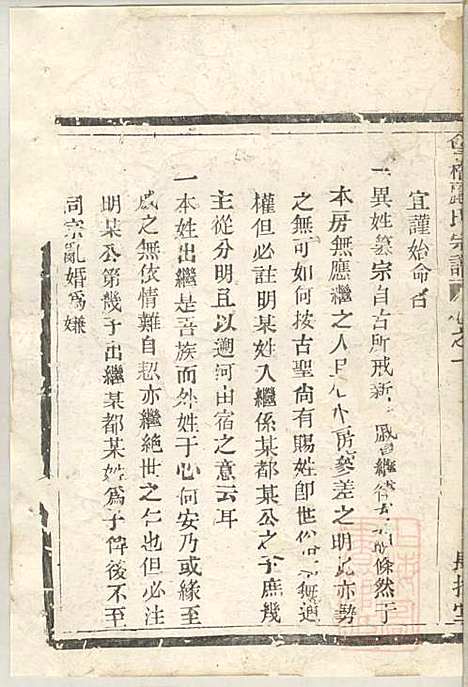 宗譜
卷之一
宜謹始命名
一異姓纂宗自古所戒新戚繼倐然于
本房無應繼之人且房參差之明此亦勢
之無可如何按古聖尚有賜姓卽世俗無通
權但必註明某姓入繼係某都某公之子庶幾
主從分明且以遡河由宿之意云耳
一本姓出繼是吾族而外姓于心何安乃或緣至
戚之無依情難自恝亦繼絕世之仁也但必注
明某公第幾子出繼某都某姓爲子俾後不至
同宗亂婚爲嫌